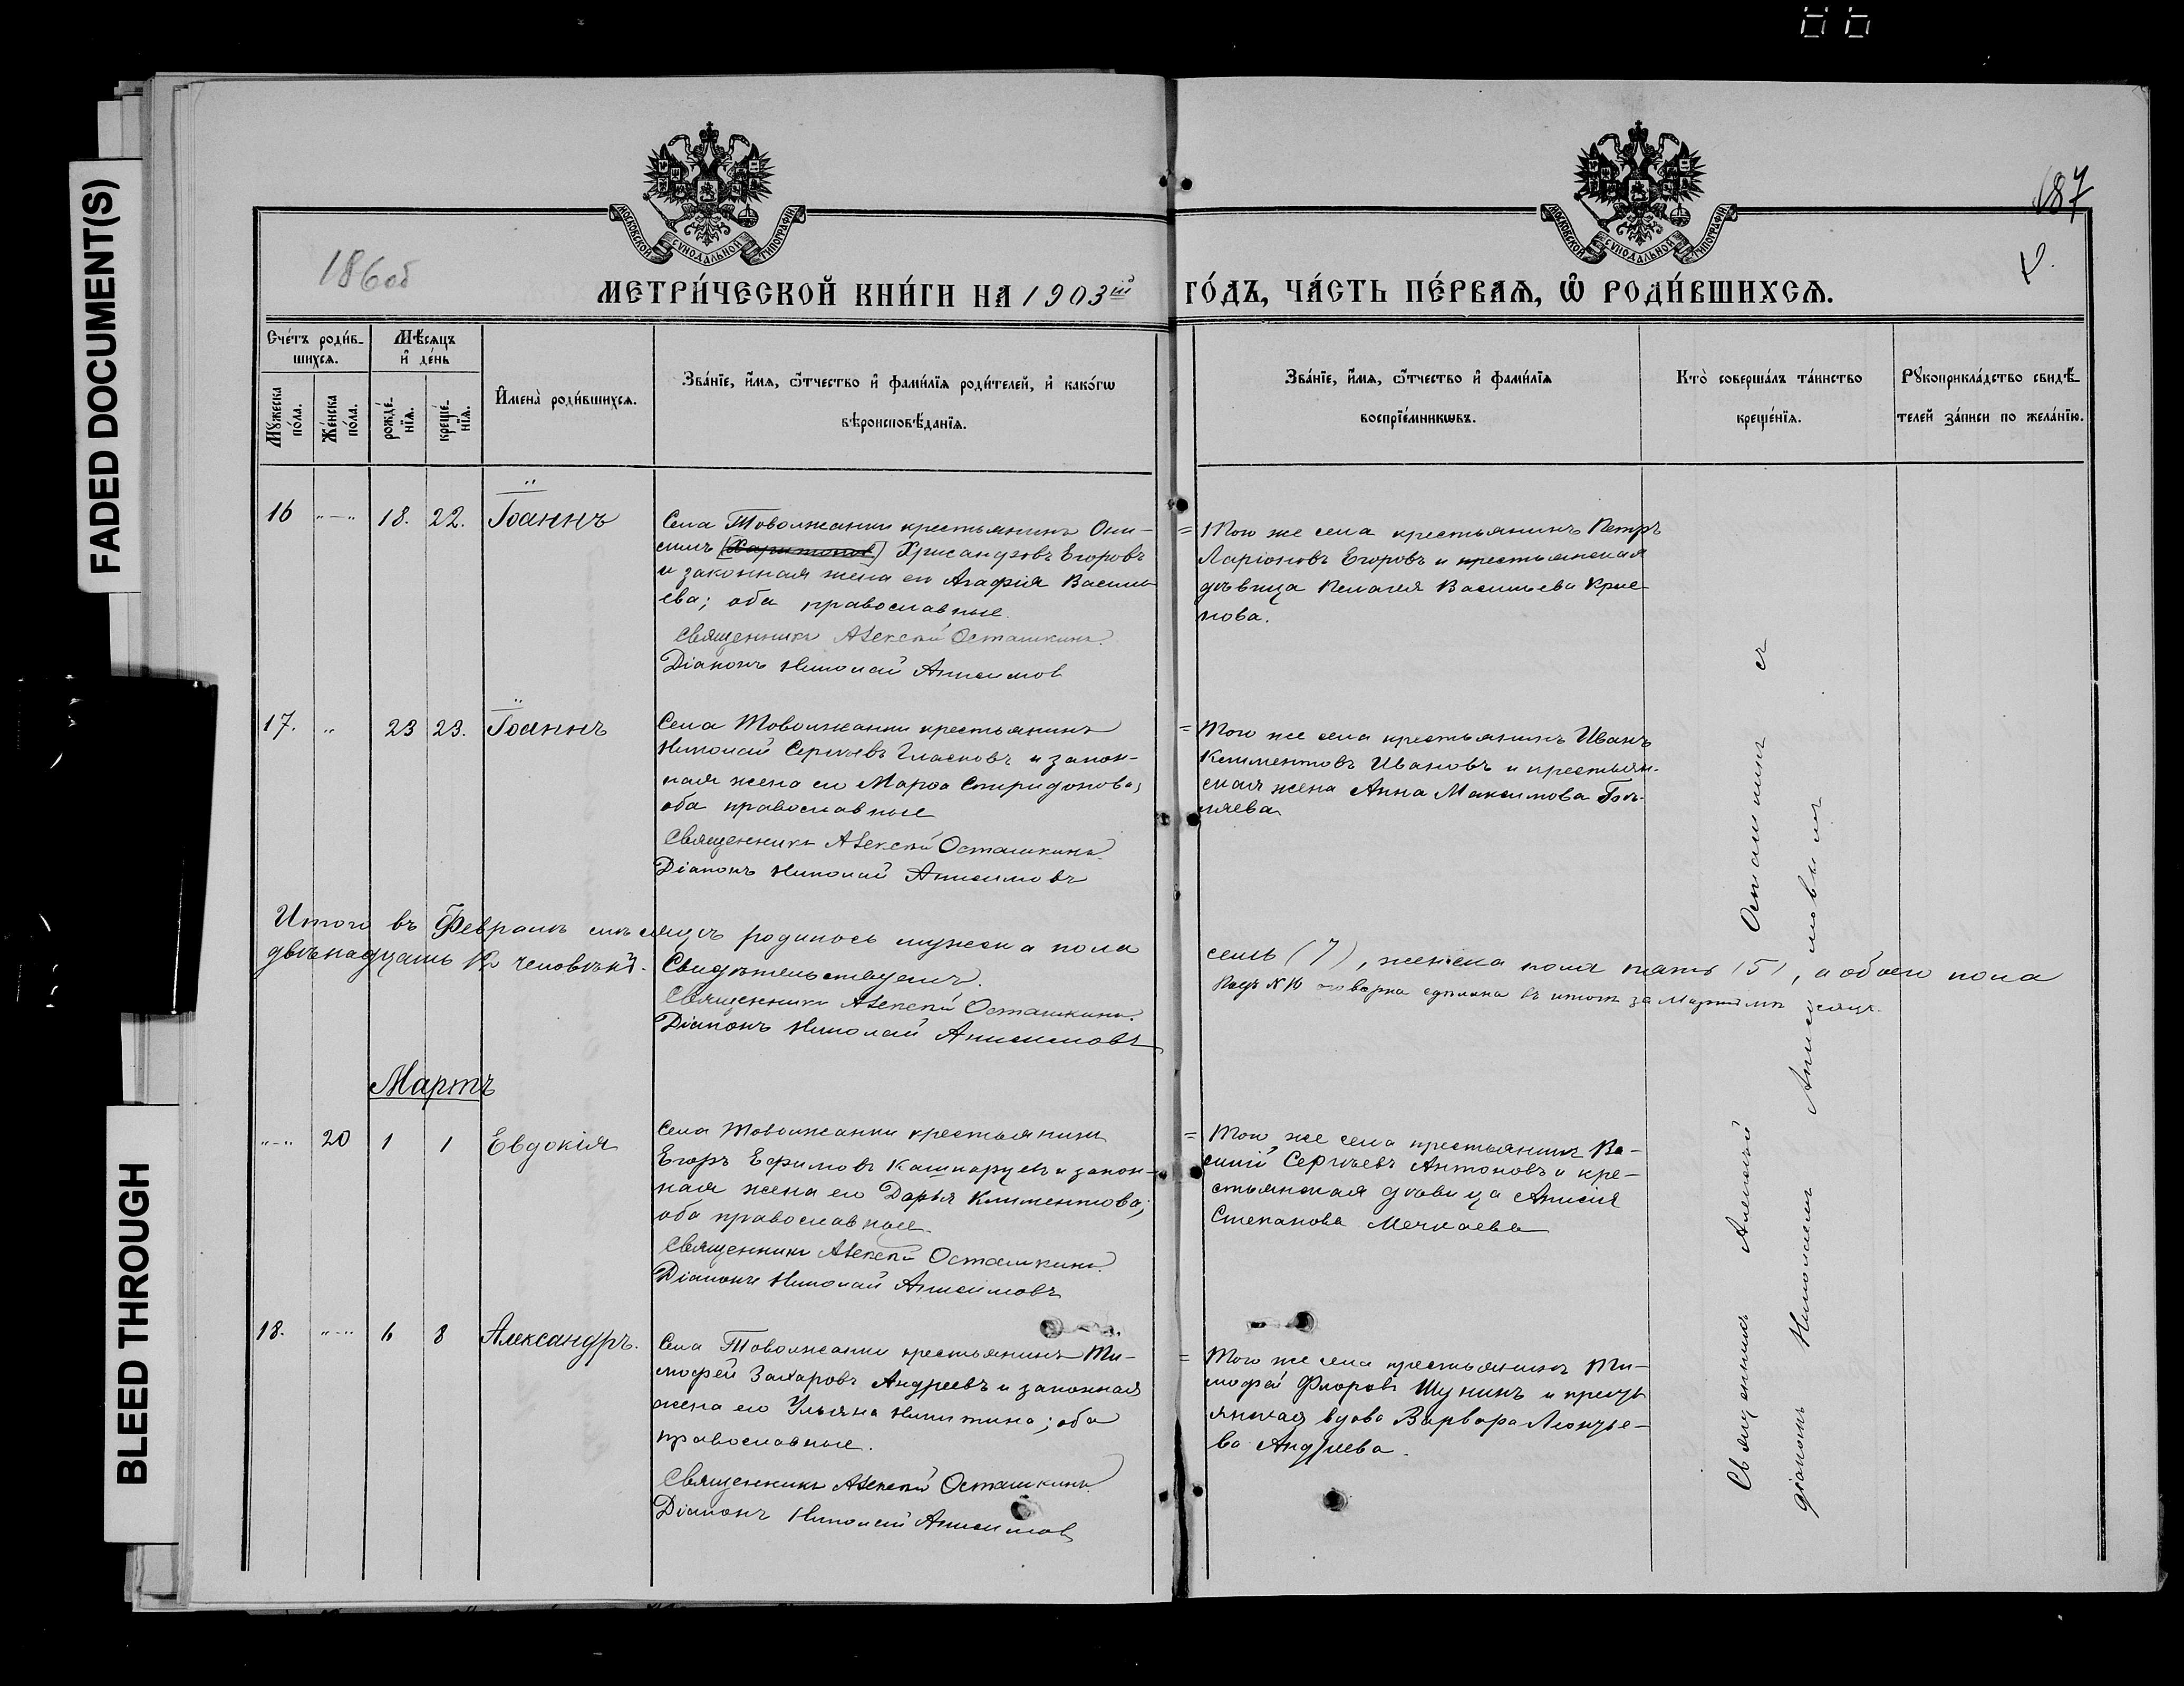 FADED DOCUMENT(S)
BLEED THROUGH
186 об
187
МОСКОВСКОЙ СѴНОДАЛЬНОЙ ТИПОГРАФІИ
МОСКОВСКОЙ СѴНОДАЛЬНОЙ ТИПОГРАФІИ
МЕТРИ́ЧЕСКОЙ КНИ́ГИ НА 1903 ій ГО́ДЪ, ЧА́СТЬ ПЕ́РВАѦ, Ѡ҆ РОДИ́ВШИХСѦ.
Сче́тъ роди́в-
шихсѧ.
Мѣ́сѧцъ
и҆ де́нь
Мꙋ́жеска
по́ла.
Же́нска
по́ла.
рожде́-
нїѧ.
креще́-
нїѧ.
И҆мена̀ роди́вшихсѧ.
Зва́нїе, и҆́мѧ, ѻ҆́тчество и҆ фамѝлїѧ роди́телей, и҆ како́гѡ
вѣроисповѣ́данїѧ.
Зва́нїе, и҆́мѧ, ѻ҆́тчество и҆ фамѝлїѧ
воспрїе́мникѡвъ.
Кто̀ соверша́лъ та́инство
креще́нїѧ.
Рꙋкоприкла́дство свидѣ́-
телей за́писи по жела́нїю.
16 "—" 18. 22. Іоаннъ
Села Товолжанки крестьянинъ Они-
симъ [Харитонов] Хрисанфовъ Егоровъ
и законная жена его Агафія Василь-
ева; оба православные.
Священникъ Алексѣй Осташкинъ.
Діаконъ Николай Анисимов
= Того же села крестьянинъ Петръ
Ларіоновъ Егоровъ и крестьянская
дѣвица Пелагея Васильева
нова.
17. " 23 23. Іоаннъ
Села Товолжанки крестьянинъ
Николай Сергѣевъ Гласковъ и закон-
ная жена его Марѳа Спиридонова;
оба православные
Священникъ Алексѣй Осташкинъ.
Діаконъ Николай Анисимовъ
= Того же села крестьянинъ Иванъ
Климентовъ Ивановъ и крестьян-
ская жена Анна Максимова
Итого въ Февралѣ мѣсяцѣ родилось мужска пола семь (7), женска пола пять (5), а обоего пола
двѣнадцать 12 человѣкъ. Свидѣтельствуемъ.
Священникъ Алексѣй Осташкинъ.
Діаконъ Николай Анисимовъ
Подъ № 10 оговорка сдѣлана въ итогѣ за Мартъ мѣсяцъ.
Мартъ
"—" 20 1 1 Евдокія
Села Товолжанки крестьянинъ
Егоръ Ефимовъ Кашкаруевъ и закон-
ная жена его Дарья Климентова;
оба православные
Священникъ Алексѣй Осташкинъ.
Діаконъ Николай Анисимовъ
= Того же села крестьянинъ Ва-
силій Сергѣевъ Антоновъ и кре-
стьянская дѣвица Анисія
Степанова Мечкаева
18. "—" 6 8 Александръ.
Села Товолжанки крестьянинъ Ти-
мофей Захаровъ Андреевъ и законная
жена его Ульяна Никитина; оба
православные.
Священникъ Алексѣй Осташкинъ
Діаконъ Николай Анисимов
= Того же села крестьянинъ Ти-
мофей Флоровъ Шунинъ и кресть
янская вдова Варвара Леонтье-
ва Андреева.
Священникъ Алексѣй Осташкинъ съ
діакономъ Николаемъ Анисимовымъ